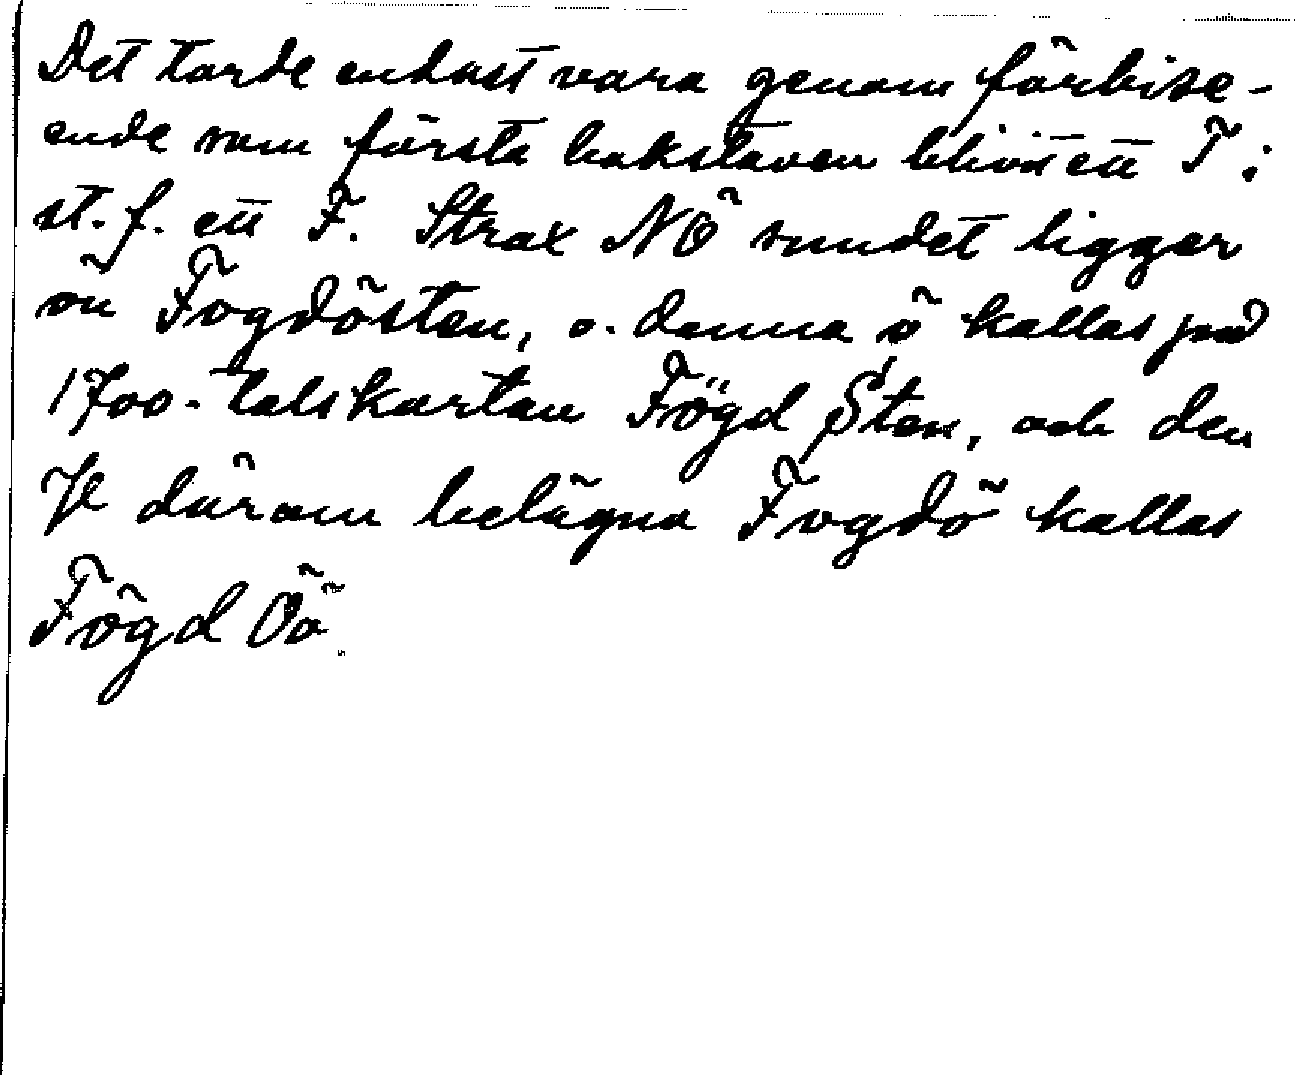 Det torde endast vara genom förbise-
ende som första bokstaven blivit ett T i
st. f. ett F. Strax NÖ sundet ligger
ön Fogdösten, o. denna ö kallas på
1700-talskartan Fögd Sten, och den
därom belägna Fogdö kallas
Fögd Öö.